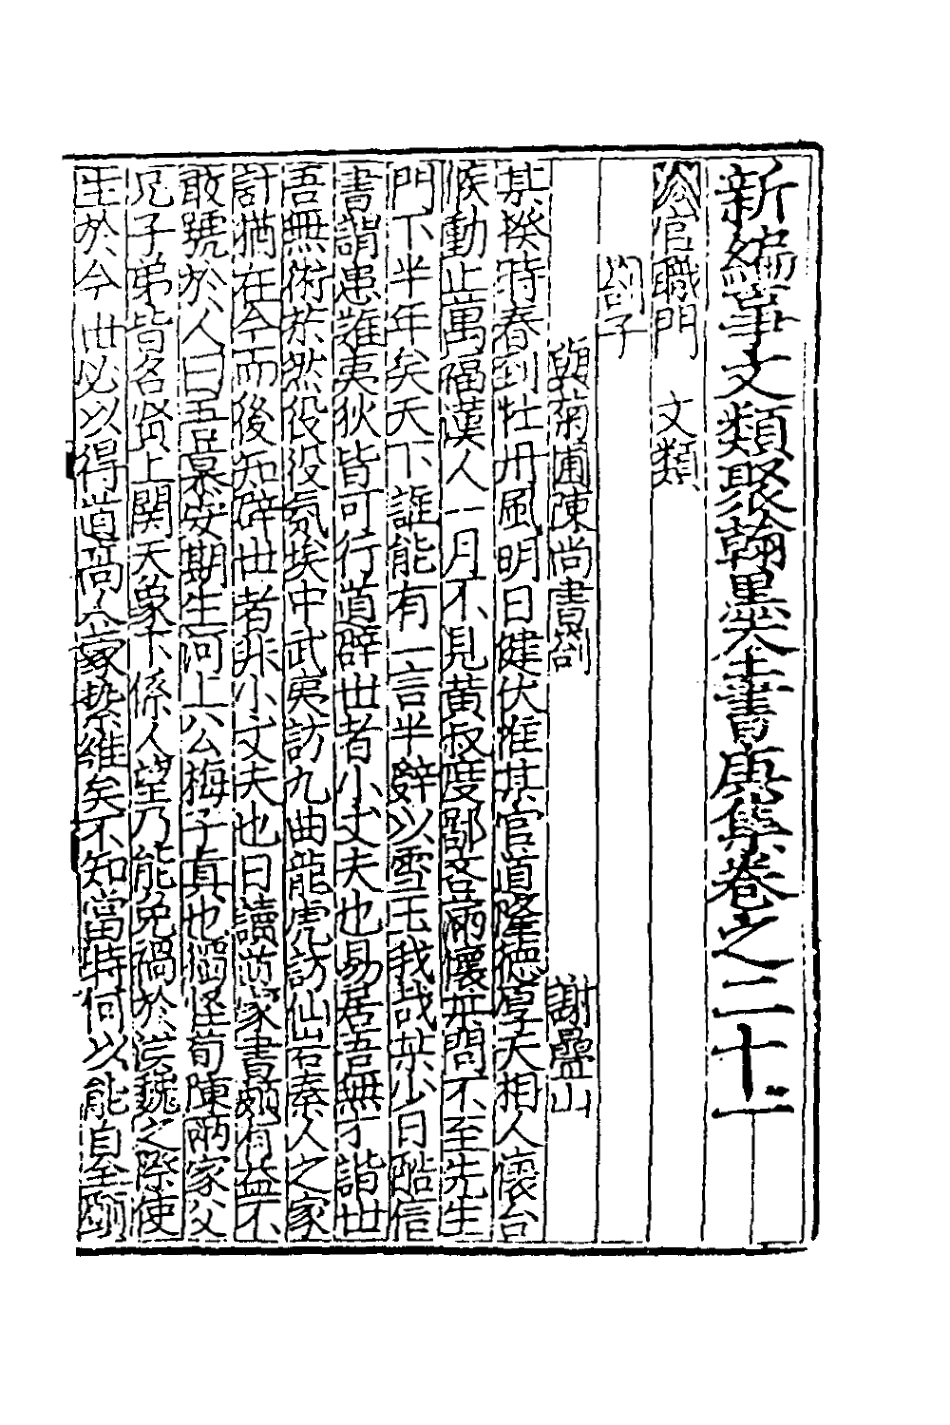 新編事文類聚翰墨大全書庚集卷之二十一
官職門　文類
劄子
與菊圃陳尚書劄　謝疊山
某揆時春到牡丹風明日健伏惟某官道隆德厚天相人懷台
候動止萬福漢人一月不見黃叔度鄙吝滿懷某問不至先生
門下半年矣天下誰能有一言半辭以雪玉我哉某少日酷信
書謂患難夷狄皆可行道辟世者小丈夫也易居吾無才諧世
吾無術於然役役氛埃中武夷訪九曲龍虎訪仙岩秦人之家
計猶在今而後知辟世者非小丈夫也日讀前家書頗有益不
敢號於人曰吾慕安期生河上公梅子真也獨怪荀陳兩家父
兄子弟皆名賢上関天象下係人望乃能免禍於漢魏之際使
生於今世必以得道高人豪縶維矣不知當時何以能自全